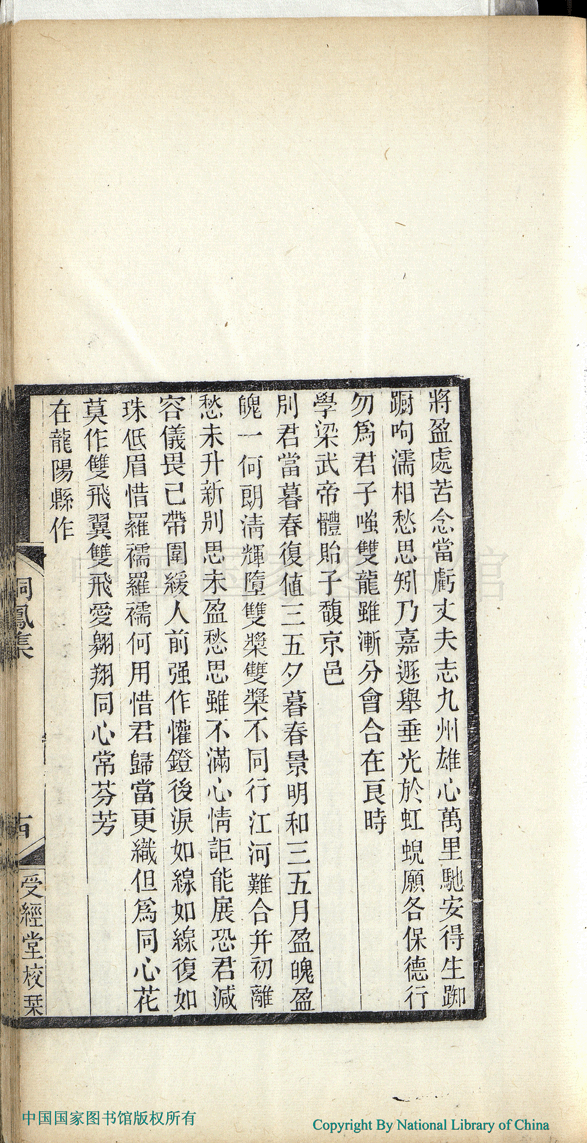 將盈處苦念當虧丈夫志九州雄心萬里馳安得生踟
蹰呴濡相愁思矧乃嘉遯舉垂光於虹蜺願各保德行
勿爲君子嗤雙龍雖漸分會合在良時
學梁武帝體貽子馥京邑
別君當暮春復値三五夕暮春景明和三五月盈魄盈
魄一何朗清輝墮雙槳雙槳不同行江河難合并初離
愁未升新别思未盈愁思雖不滿心情詎能展恐君減
容儀畏已帶圍緩人前强作懽鐙後淚如線如線復如
珠低眉惜羅襦羅襦何用惜君歸當更織但爲同心花
莫作雙飛翼雙飛愛翱翔同心常芬芳
在龍陽縣作
桐鳳集
受經堂校栞
中国国家图书馆
中国国家图书馆版权所有
Copyright By National Library of China